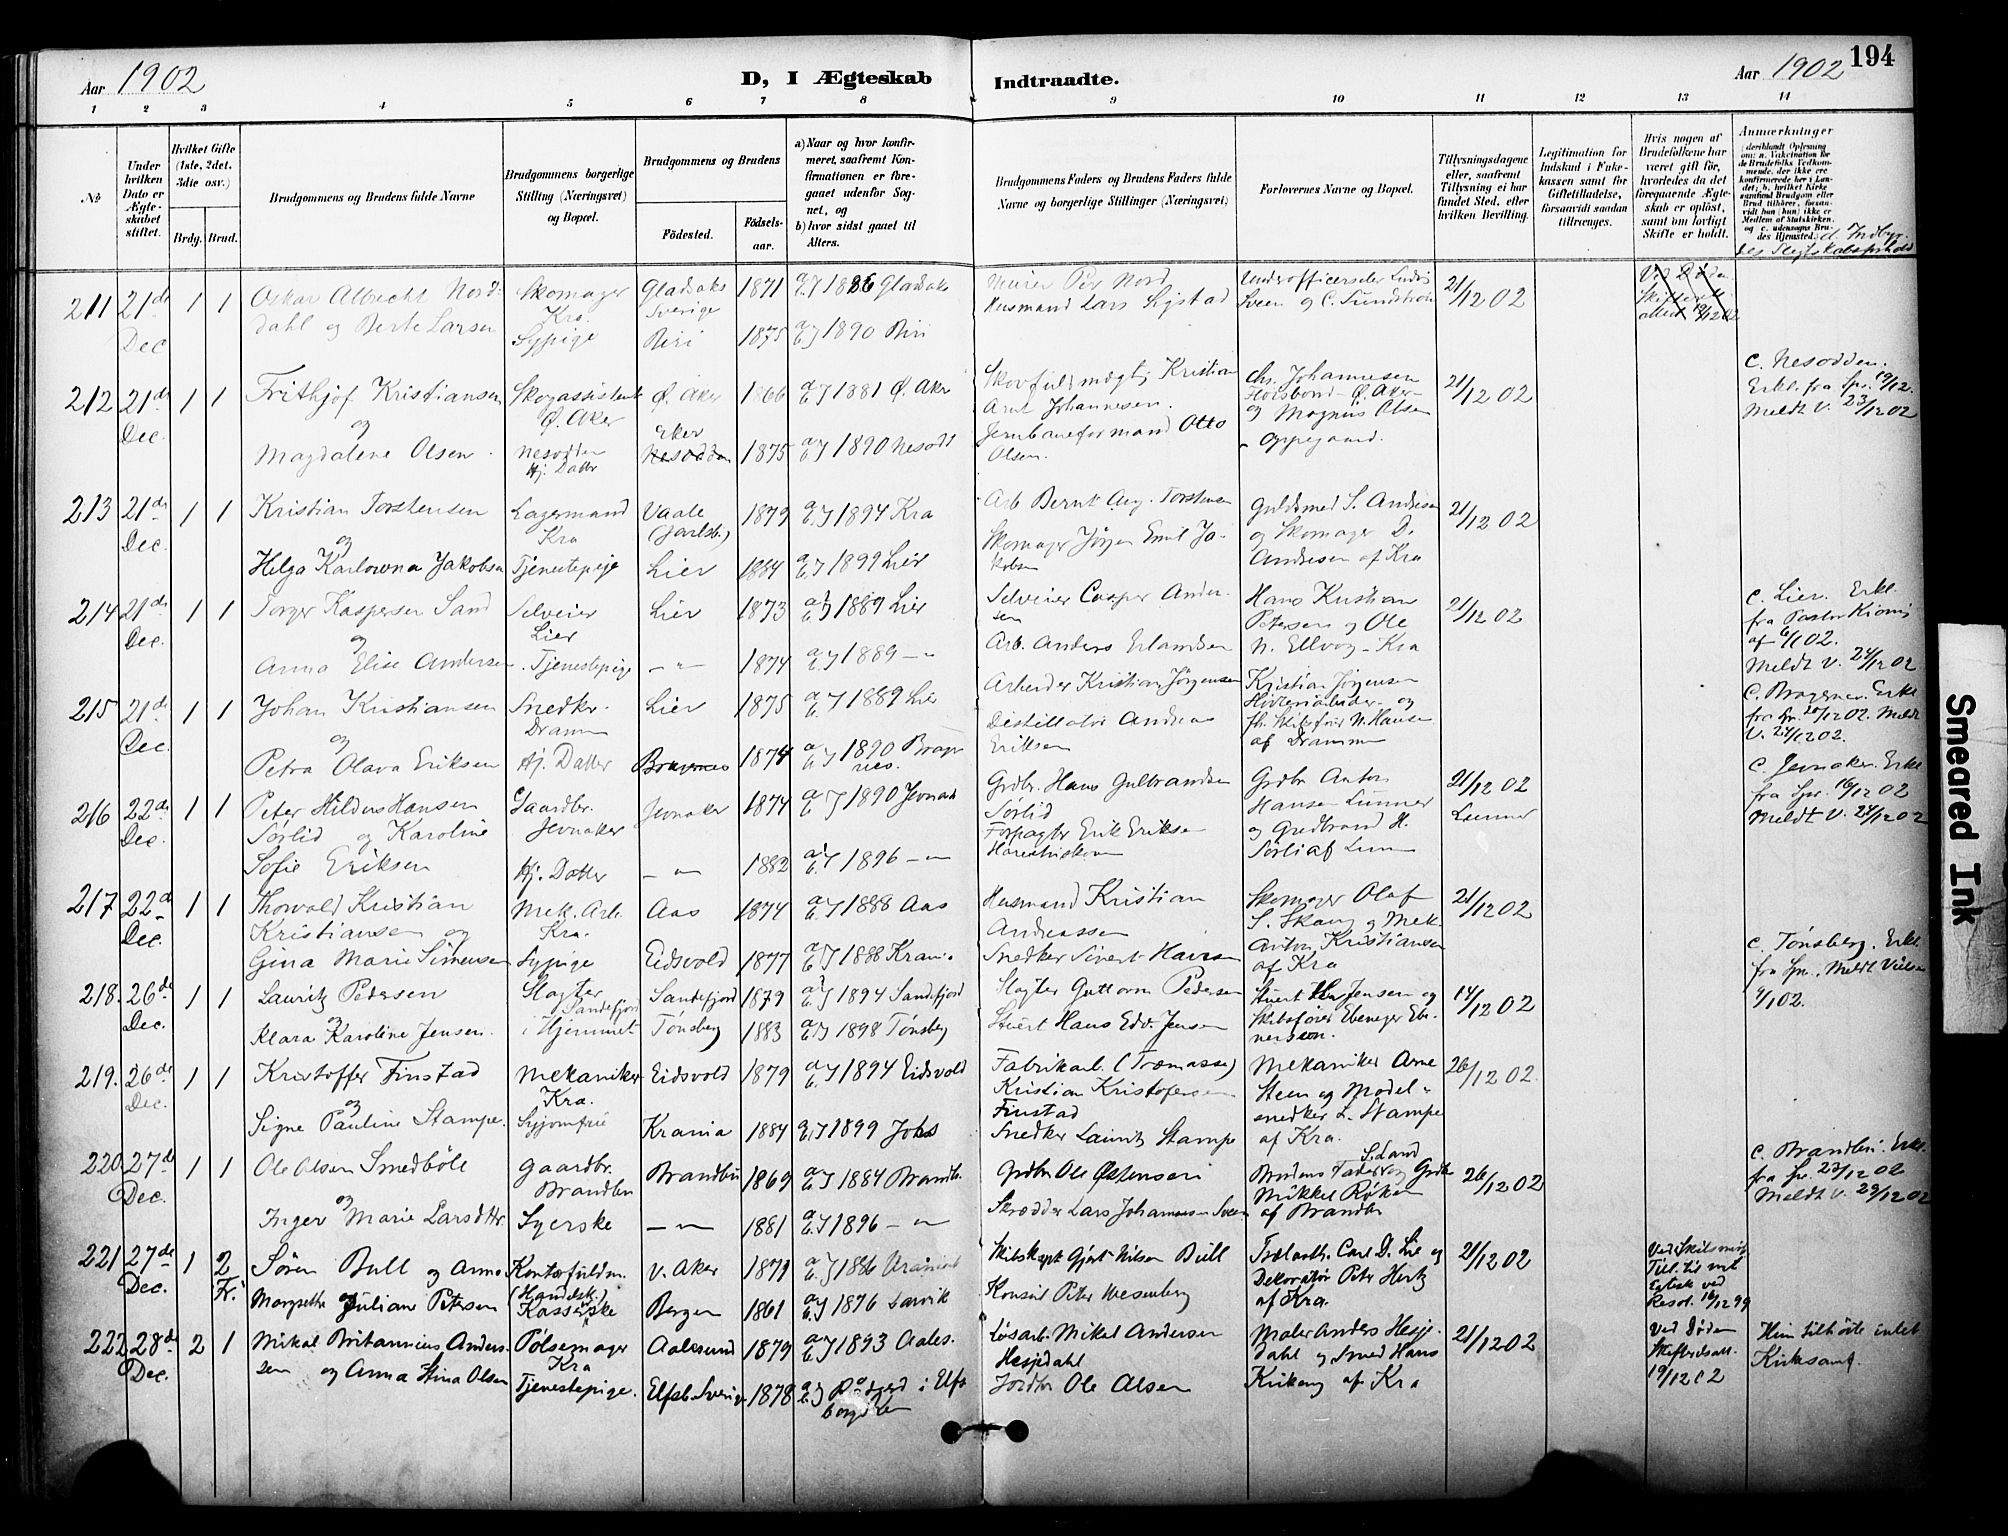 Aar 1902
D, I Ægteskab Indtraadte.
Aar 1902
194
1 2 3 4 5 6 7 8 9 10 11 12 13 14
No
Under hvilken Dato er Ægteskabet stiftet.
Hvilket Gifte (1ste, 2det, 3die osv.)
Brdg. Brud.
Brudgommens og Brudens fulde Navne
Brudgommens borgerlige Stilling (Næringsvei) og Bopæl.
Brudgommens og Brudens
Födested.
Födselsaar.
a) Naar og hvor konfirmeret, saafremt Konfirmationen er foregaaet udenfor Sognet, og
b) hvor sidst gaaet til Alters.
Brudgommens Faders og Brudens Faders fulde Navne og borgerlige Stillinger (Næringsvei)
Forlovernes Navne og Bopæl.
Tillysningsdagene eller, saafremt Tillysning ei har fundet Sted, efter hvilken Bevilling.
Legitimation for Indskud i Enkekassen samt for Giftetilladelse, forsaavidt saadan tiltrænges.
Hvis nogen af Brudefolkene har været gift för, hvorledes da det foregaaende Ægteskab er oplöst, samt om lovligt Skifte er holdt.
Anmærkninger
211 21de Dec 1 1
Oskar Albrecht Norddahl og Berte Larsen
Skomager Kra.
Sypige
Gladsaks Sverige
Biri
1871
1875
1886 Gladsaks
1890 Biri
Murer Per Nord
Husmand Lars Sigstad
Underofficerselev Ludvig Sveen og C. Sundström
21/12 02
212 21de Dec. 1 1
Frithjof Kristiansen
og
Magdalene Olsen
Skogassistent Ö. Aker
Nesodden Hj. Datter
Ö. Aker
Aker
Nesodden
1866
1875
1881 Ö. Aker
1890 Nesodd
Skovfuldmægtig Kristian Arnt Johannesen.
Jernbaneformand Otto Olsen.
Chr. Johannesen
Ö. Aker
og Magnus Olsen
Oppegaard.
21/12 02
C. Nesodden.
Erkl. fra Spr. 19/12.
Meldt v. 23/12 02
213 21de Dec. 1 1
Kristian Torstensen
og
Helga Karlowna Jakobsen
Lagermand Kra
Tjenestepige
Vaale (Jarlsb.)
Lier
1879
1884
1894 Kra
1899 Lier
Arb. Bernt Aug. Torstensen
Skomager Jörgen Emil Jakobsen
Guldsmed S. Andresen
og Skomager D.
Andresen af Kra
21/12 02
214 21de Dec. 1 1
Torger Kaspersen Sand
og
Anna Elise Andersen
Selveier Lier
Tjenestepige
Lier
1873
1874
1889 Lier
1889
Selveier Casper Andersen
Arb. Anders Erlandsen
Hans Kristian
Petersen og Ole
N. Ellvog - Kra
21/12 02
C. Lier. Erkl.
fra Pastor
Meldt v. 24/12 02
215 21de Dec. 1 1
Johan Kristiansen
og
Petra Olava Eriksen
Snedker. Dramm
Hj. Datter
Lier
Bragernes
1875
1874
1889 Lier
1890 Bragernes.
Arbeider Kristian Jörgensen
Destillatör Andreas Eriksen
Kristian Jörgensen
og
fh. Skibsförer N. Hansen
af Drammen
C. Bragernes. Erkl.
fra Spr. 20/12 02. Meldt
v. 24/12 02.
216 22de Dec. 1 1
Peter Hildus Hansen
Sörlid og Karoline
Sofie Eriksen
Gaardbr. Jevnaker
Hj. Datter
Jevnaker
1874
1882
1890 Jevnak
1896
Grdbr. Hans Gulbrandsen Sörlid
Forpagter Erik Eriksen
Grdbr. Anton
Hansen Lunner
og Gudbrand H.
Sörli af Lunn
21/12 02
Lunner
C. Jevnaker. Erkl.
fra Spr. 16/12 02
Meldt v. 24/12 02
217 22de Dec. 1 1
Thorvald Kristian
Kristiansen og
Gina Marie Simensen
Mek. Arb. Kra.
Sypige
Aas
Eidsvold
1874
1877
1888 Aas
1888 Krania
Husmand Kristian
Andreassen
Snedker Sivert Hansen
Skomager Olaf
S. Skaug og Mek.
Anton Kristiansen
af Kra
21/12 02
218. 26de Dec. 1 1
Lauritz Pedersen
og
Klara Karoline Jensen.
Slagter Sandefjord
i Hjemmet
Sandefjord
Tönsberg
1879
1883
1894 Sandefjord
1898 Tönsberg
Slagter Guttorm Pedersen
Stuert Hans Edv. Jensen
Stuert H. Jensen og
Skibsförer Ebeneser Ebenersson.
14/12 02
C. Tönsberg. Erkl.
fra Spr. Meldt
219. 26de Dec. 1 1
Kristoffer Finstad
og
Signe Pauline Stampe.
Mekaniker Kra.
Syjomfru
Eidsvold
Krania
1879
1884
1894 Eidsvold
1899 Johs
Fabrikarb. (Træmasse)
Kristian Kristofersen
Finstad
Snedker Lauritz Stampe
Mekaniker Arne
Steen og Modelsnedker L. Stampe
af Kra.
26/12 02
220 27de Dec. 1 1
Ole Olsen Smedböle
og
Inger Marie Larsdttr.
Gaardbr. Brandbu
Syerske
Brandbu
1869
1881
1884 Brandb.
1896
Grdbr. Ole Östensen
Skrædder Lars Johannesen Sveen
Brudens Fader og Grdbr.
Mikkel Röken
af Brandbu
26/12 02
C. Brandbu. Erkl.
fra Spr. 23/12 02
Meldt v. 29/12 02
221 27de Dec. 1 2 Fr.
Sören Bull og Anna
Margrethe Juliane Petersen
Kontorfuldm. (Handelsk.)
Kassererske
V. Aker
Bergen
1871
1861
1886
1876 Larvik
Skibskapt Gjert Nilsen Bull
Konsul Peter Wesenberg
Trælasth. Carl D. Lie og
Dekoratör Peter Hertz
af Kra.
21/12 02
Ved Skilsmis
Till. til nyt
Egtesk. ved
Resol. 16/12 99
222 28de Dec. 2 1
Mikal Britannius Anderssen og Anna Stina Olsen
Pölsemager Kra
Tjenestepige.
Aalesund
Elfsb. Sverige
1879
1878
1893 Aales.
i Elfsborgs
Lösarb. Mikal Andersen
Hesjedahl
Jordbr Ole Olsen
Maler Anders Hesjedahl og Smed Hans
af Kra
21/12 02
Ved Döden
Skifteridsatt.
19/12 02
Hun tilhörte intet
Kirksamf.
Smeared Ink